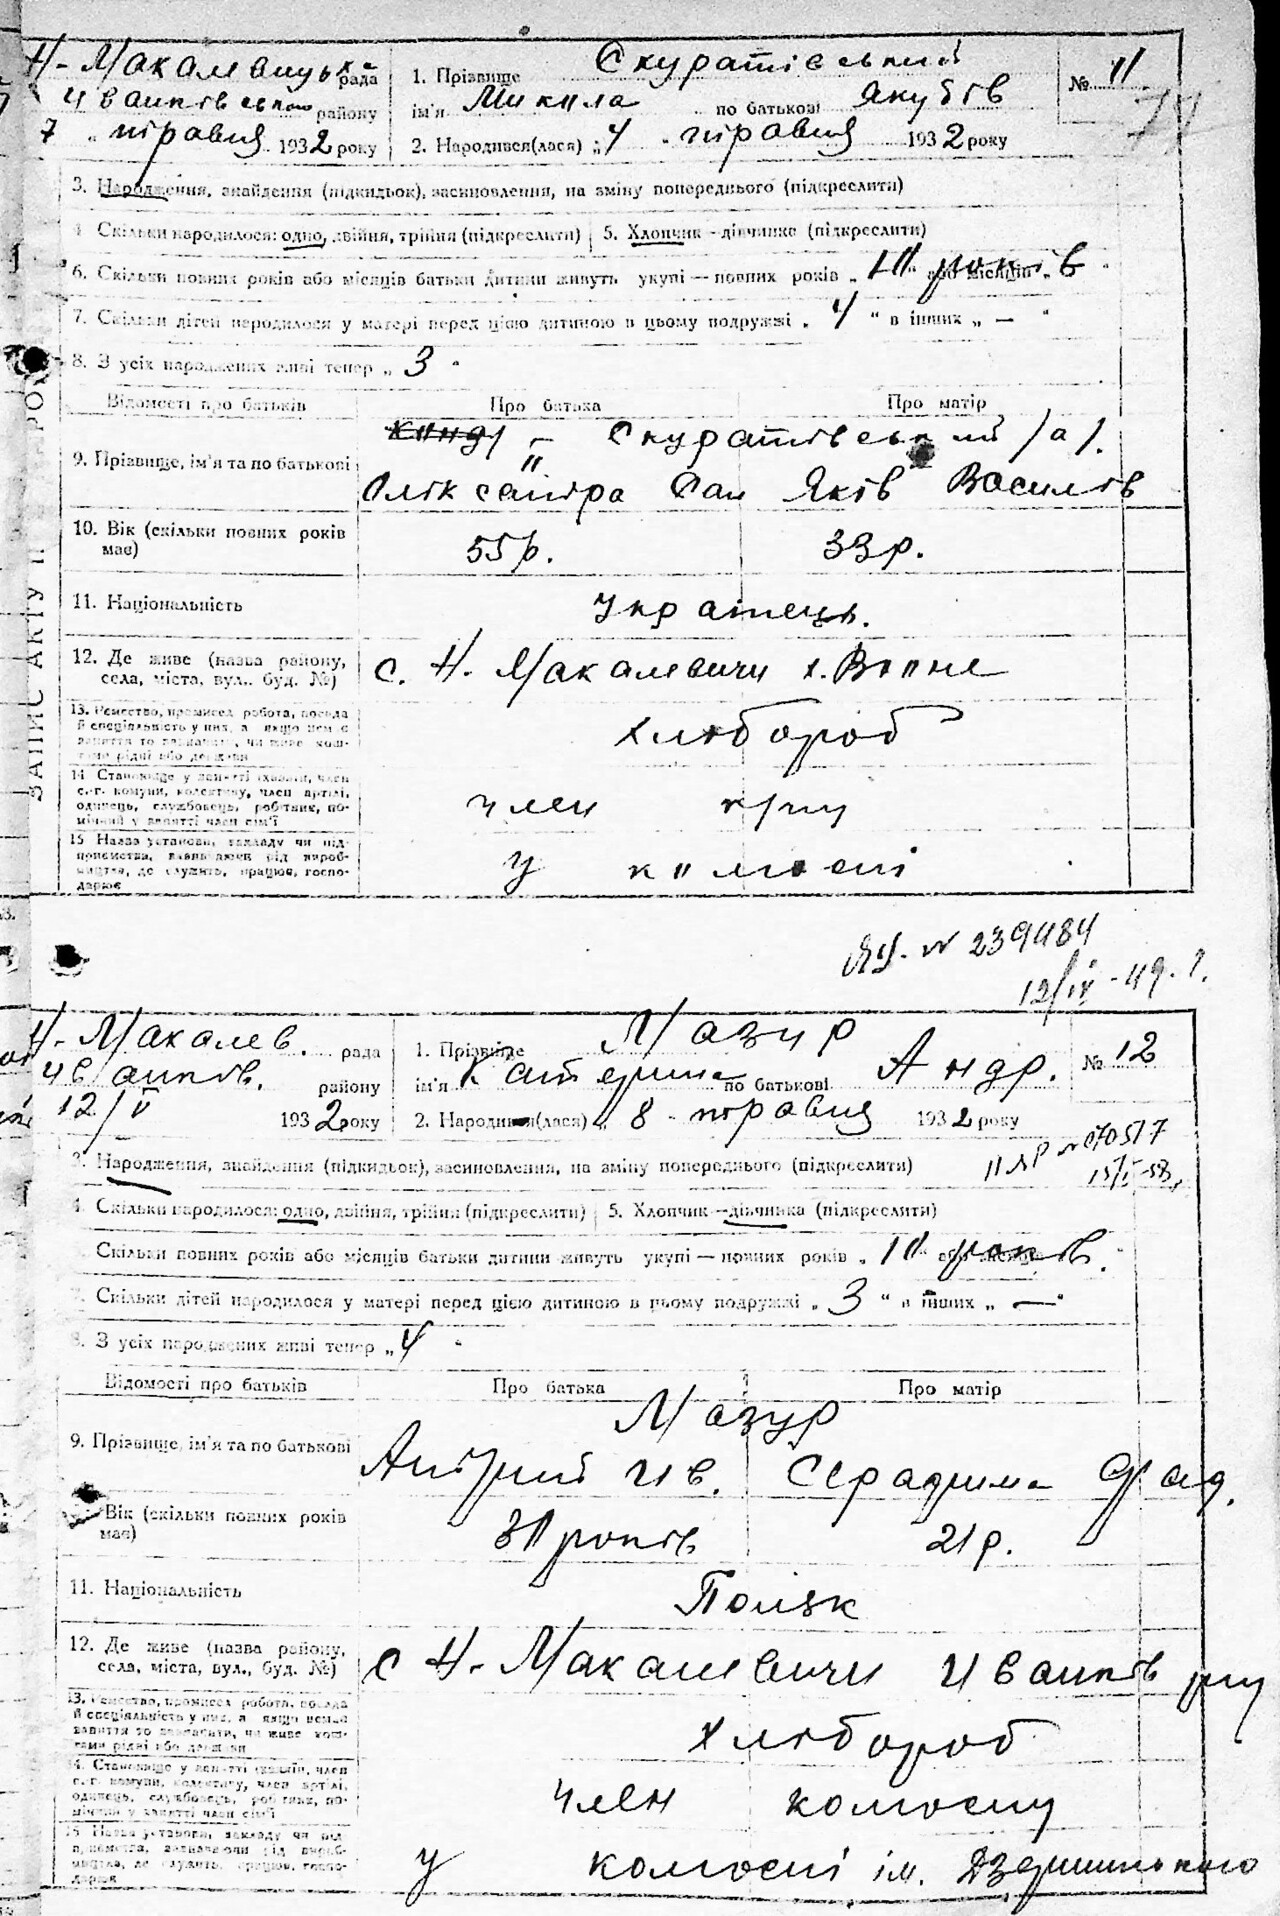 Н-Макалевицька рада
Іванківського району
7 " травня 1932 року
1. Прізвище Скуратівський
ім'я Микола по батькові Якубів
2. Народився(лася) „4 " травня 1932 року
№ 11
3. Народження, знайдення (підкидьок), засиновлення, на зміну попереднього (підкреслити)
4 Скільки народилося: одно, двійня, трійня (підкреслити) 5. Хлопчик—дівчинка (підкреслити)
6. Скільки повних років або місяців батьки дитини живуть укупі — повних років „ 10 " або місяців років
7. Скільки дітей народилося у матері перед цією дитиною в цьому подружжі „ 4 " в інших „ — "
8. З усіх народжених живі тепер „ 3 "
Відомості про батьків Про батька Про матір
ЗАПИС АКТУ П РО
Скуратівський /а/.
9. Прізвище, ім'я та по батькові
Олександра Яків Василів
10. Вік (скільки повних років має) 55р. 33р.
11. Національність Українець.
12. Де живе (назва району, села, міста, вул., буд. №) с. Н. Макалевичи х. Вопне
13. Ремество, промисел робота, посада й спеціяльність у них, а якщо нема заняття то зазначити, чи живе коштами рідні або держави
хлібороб
14 Становище у занятті (хазяїн, член с.-г. комуни, колективу, член артілі, одинець, службовець, робітник, помічний у занятті член сім'ї
член
15 Назва установи, закладу чи підприємства, зазначаючи рід виробництва, де служить, працює, господарює
У колгоспі
ЯУ. N 239484
12/IV-49.
Н-Макалев. рада
Іванків. району
12/V 1932 року
1. Прізвище Мазур
ім'я Катерина по батькові Андр.
2. Народився(лася) „ 8 " травня 1932 року
№ 12
3. Народження, знайдення (підкидьок), засиновлення, на зміну попереднього (підкреслити)
4. Скільки народилося: одно, двійня, трійня (підкреслити) 5. Хлопчик—дівчинка (підкреслити)
Скільки повних років або місяців батьки дитини живуть укупі — повних років „ 10 " або місяців років.
Скільки дітей народилося у матері перед цією дитиною в цьому подружжі „ 3 " в інших „ — "
8. З усіх народжених живі тепер „ 4 "
Відомості про батьків Про батька Про матір
Мазур
9. Прізвище, ім'я та по батькові
Андрій Ив. Серафима Фад.
Вік (скільки повних років має) 30 років 21 р.
11. Національність Поляк
12. Де живе (назва району, села, міста, вул., буд. №) с Н-Макалевичи Иванків р-ну
13. Ремество, промисел робота, посада й спеціяльність у них, а якщо нема заняття то зазначити, чи живе коштами рідні або держави
хлібороб
14. Становище у занятті (хазяїн, член с.-г. комуни, колективу, член артілі, одинець, службовець, робітник, помічний у занятті член сім'ї
член колгоспу
15 Назва установи, закладу чи підприємства, зазначаючи рід виробництва, де служить, працює, господарює
У колгоспі ім. Дзержинського